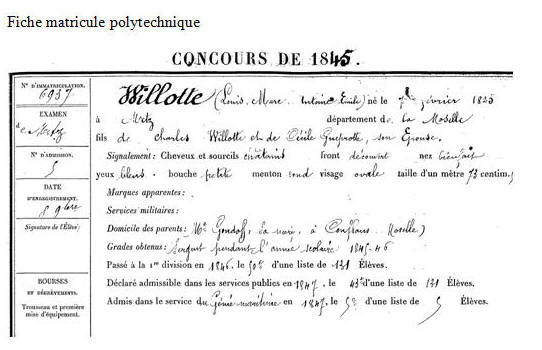 Fiche matricule polytechnique
CONCOURS DE 1845.
N° D'IMMATRICULATION.
6937
EXAMEN
de Metz
N° D'ADMISSION.
5
DATE
D'ENREGISTREMENT.
8 9bre
Signature de l'Élève:
BOURSES
ET DÉGRÈVEMENTS.
Trousseau et première
mise d'équipement.
Willotte (Louis, Marc, Antoine Emile) né le 7 février 1825
à Metz département de la Moselle
fils de Charles Willotte et de Cécile son Epouse.
Signalement: Cheveux et sourcils châtains front découvert nez
yeux bleus. bouche petite menton rond visage ovale taille d'un mètre 73 centim.
Marques apparentes:
Services militaires:
Domicile des parents: Me la mère, à Conflans, Moselle)
Grades obtenus: Sergent pendant l'année scolaire 1845-46
Passé à la 1re division en 1846, le 50e d'une liste de 131 Élèves.
Déclaré admissible dans les services publics en 1847, le 43e d'une liste de 131 Élèves.
Admis dans le service du Génie maritime en 1847, le 5e d'une liste de 5 Élèves.